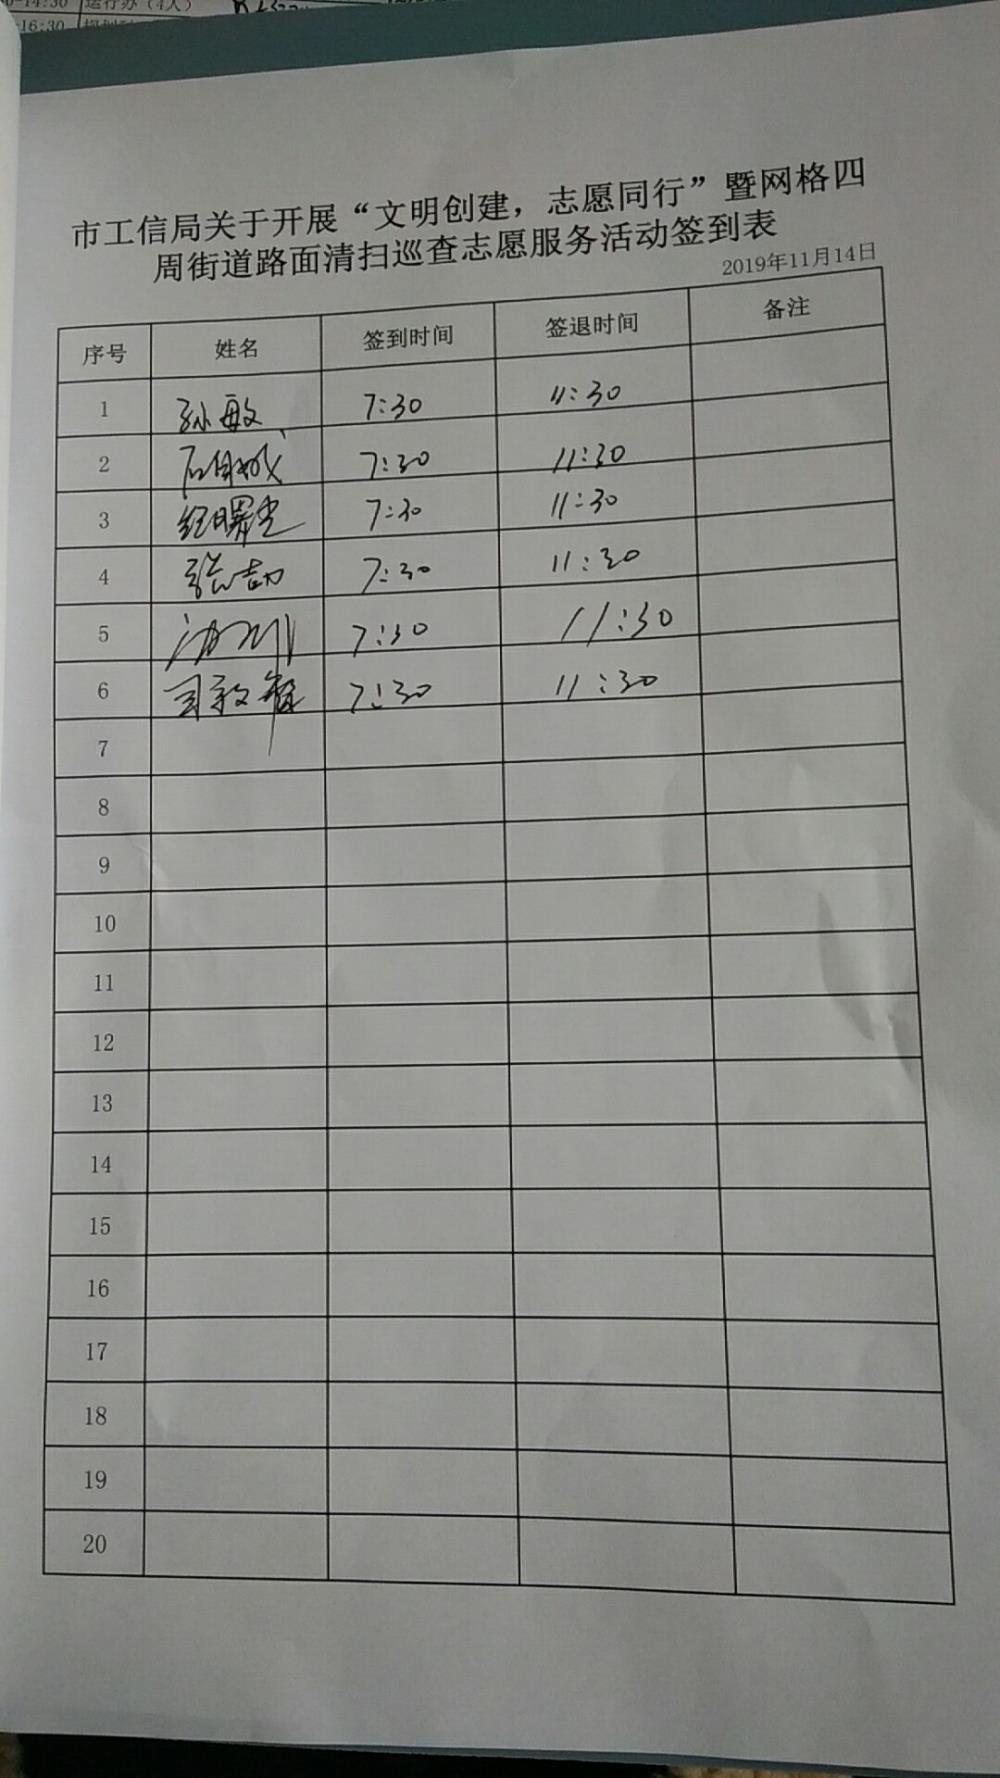 运行办（4人）
-16:30
市工信局关于开展“文明创建，志愿同行”暨网格四
周街道路面清扫巡查志愿服务活动签到表
2019年11月14日
序号 姓名 签到时间 签退时间 备注
1 孙敏 7:30 11:30
2 7:30 11:30
3 纪曙光 7:30 11:30
4 张志劼 7:30 11:30
5 7:30 11:30
6 7:30 11:30
7
8
9
10
11
12
13
14
15
16
17
18
19
20